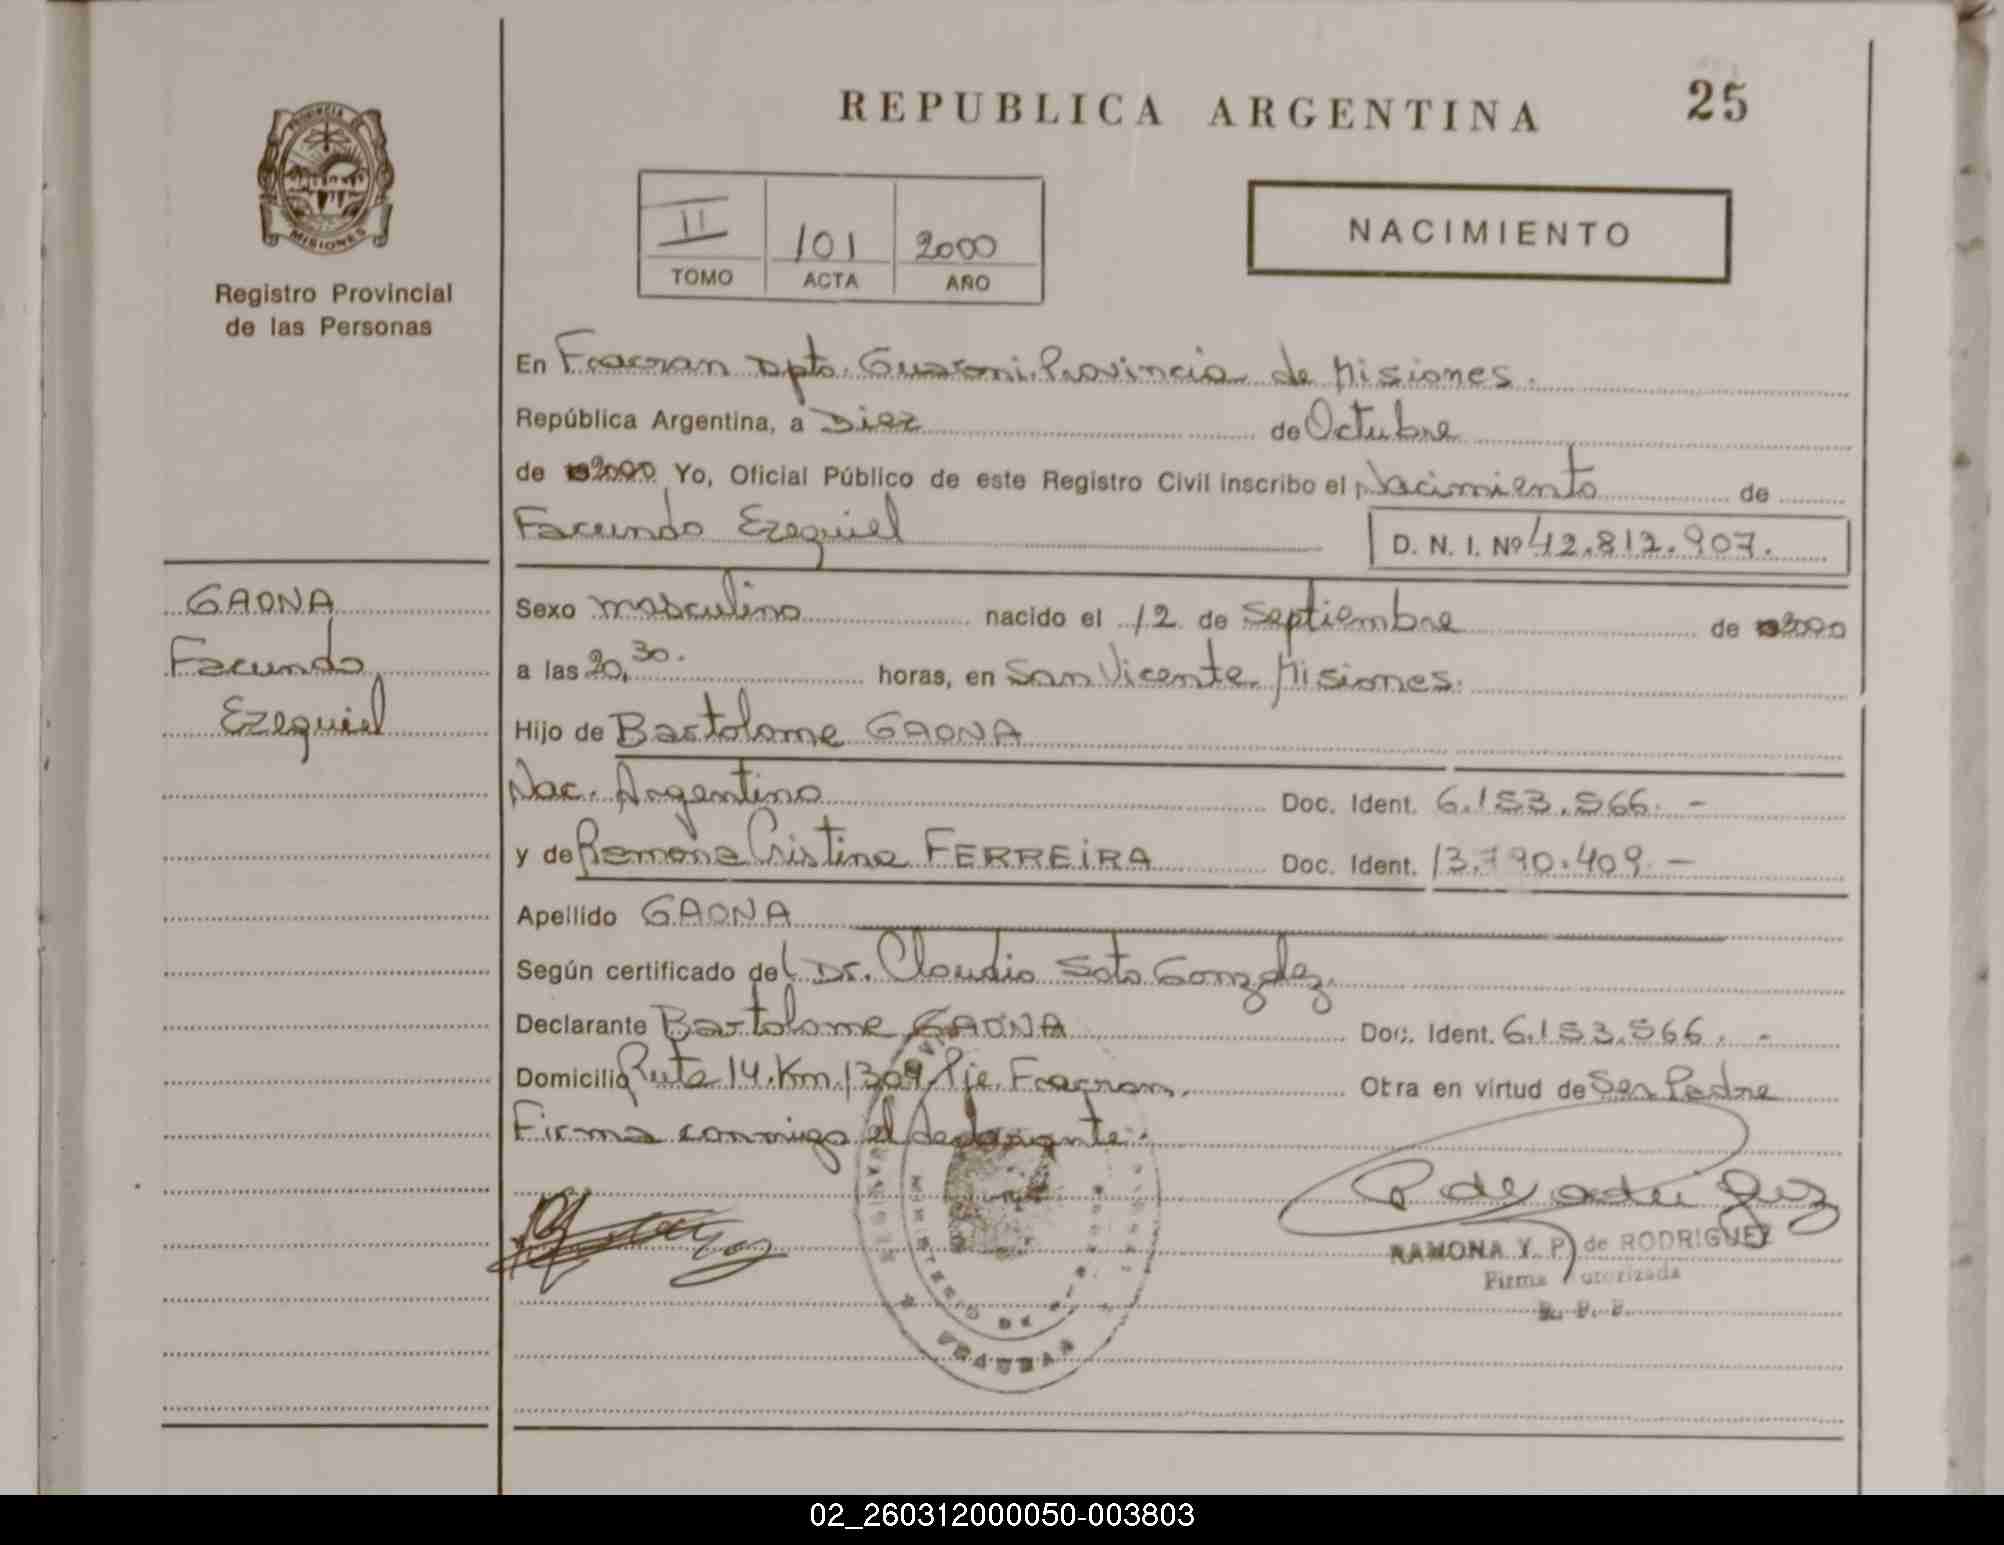 REPUBLICA ARGENTINA
25
PROVINCIA DE
MISIONES
Registro Provincial
de las Personas
II 101 2000
TOMO ACTA AÑO
NACIMIENTO
En Fracran Dpto. Guarani. Provincia de Misiones.
República Argentina, a Diez de Octubre
de 2000 Yo, Oficial Público de este Registro Civil inscribo el Nacimiento de
Facundo Ezequiel D. N. I. Nº 42.812.907.
GAONA
Facundo
Ezequiel
Sexo masculino nacido el 12 de Septiembre de 2000
a las 20,30. horas, en San Vicente Misiones.
Hijo de Bartolome GAONA
Nac. Argentino Doc. Ident. 6.153.566.-
y de Ramona Cristina FERREIRA Doc. Ident. 13.790.409.-
Apellido GAONA
Según certificado del Dr. Claudio Soto Gonzalez.
Declarante Bartolome GAONA Doc. Ident. 6.153.566.-
Domicilio Ruta 14.Km.1309 Pje. Fracran. Otra en virtud de Ser Padre
Firma conmigo el declarante.
RAMONA Y. P. de RODRIGUEZ
Firma Autorizada
MINISTERIO DE
FRACRAN
02_260312000050-003803